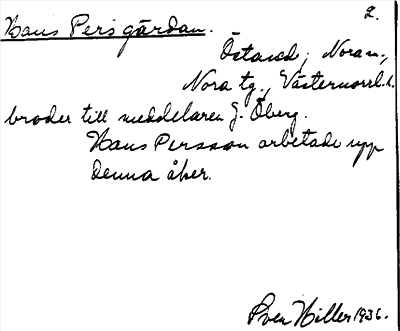 2.
Hans Persgårdan.
Östanö; Nora sn.,
Nora tg., Västernorrl. l.
broder till meddelaren J. Öberg.
Hans Persson arbetade upp
denna åker.
Sven Hiller 1936.